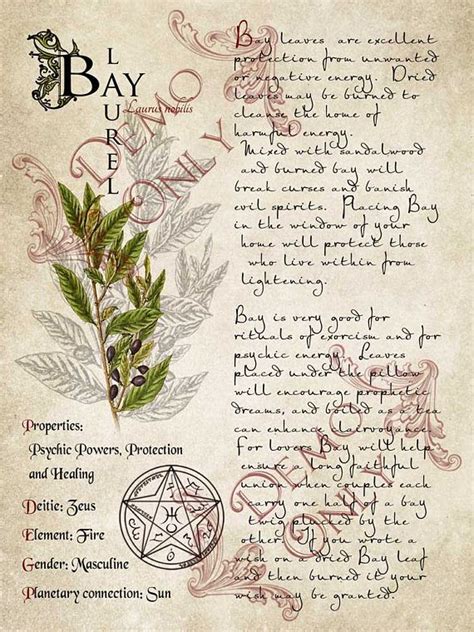 BAY
LAUREL
Laurus nobilis
DEMO
ONLY
Bay leaves are excellent
protection from unwanted
or negative energy. Dried
leaves may be burned to
cleanse the home of
harmful energy.
Mixed with sandalwood
and burned bay will
break curses and banish
evil spirits. Placing Bay
in the window of your
home will protect those
who live within from
lightening.
Bay is very good for
rituals of exorcism and for
psychic energy. Leaves
placed under the pillow
will encourage prophetic
dreams, and boiled as a tea
can enhance lairvoyance.
For lovers Bay will help
ensure a long faithful
union when couples each
carry one half of a bay
twig plucked by the
other. If you wrote a
wish on a dried Bay leaf
and then burned it your
wish may be granted.
DEMO
ONLY
Properties:
Psychic Powers, Protection
and Healing
Deitie: Zeus
Element: Fire
Gender: Masculine
Planetary connection: Sun